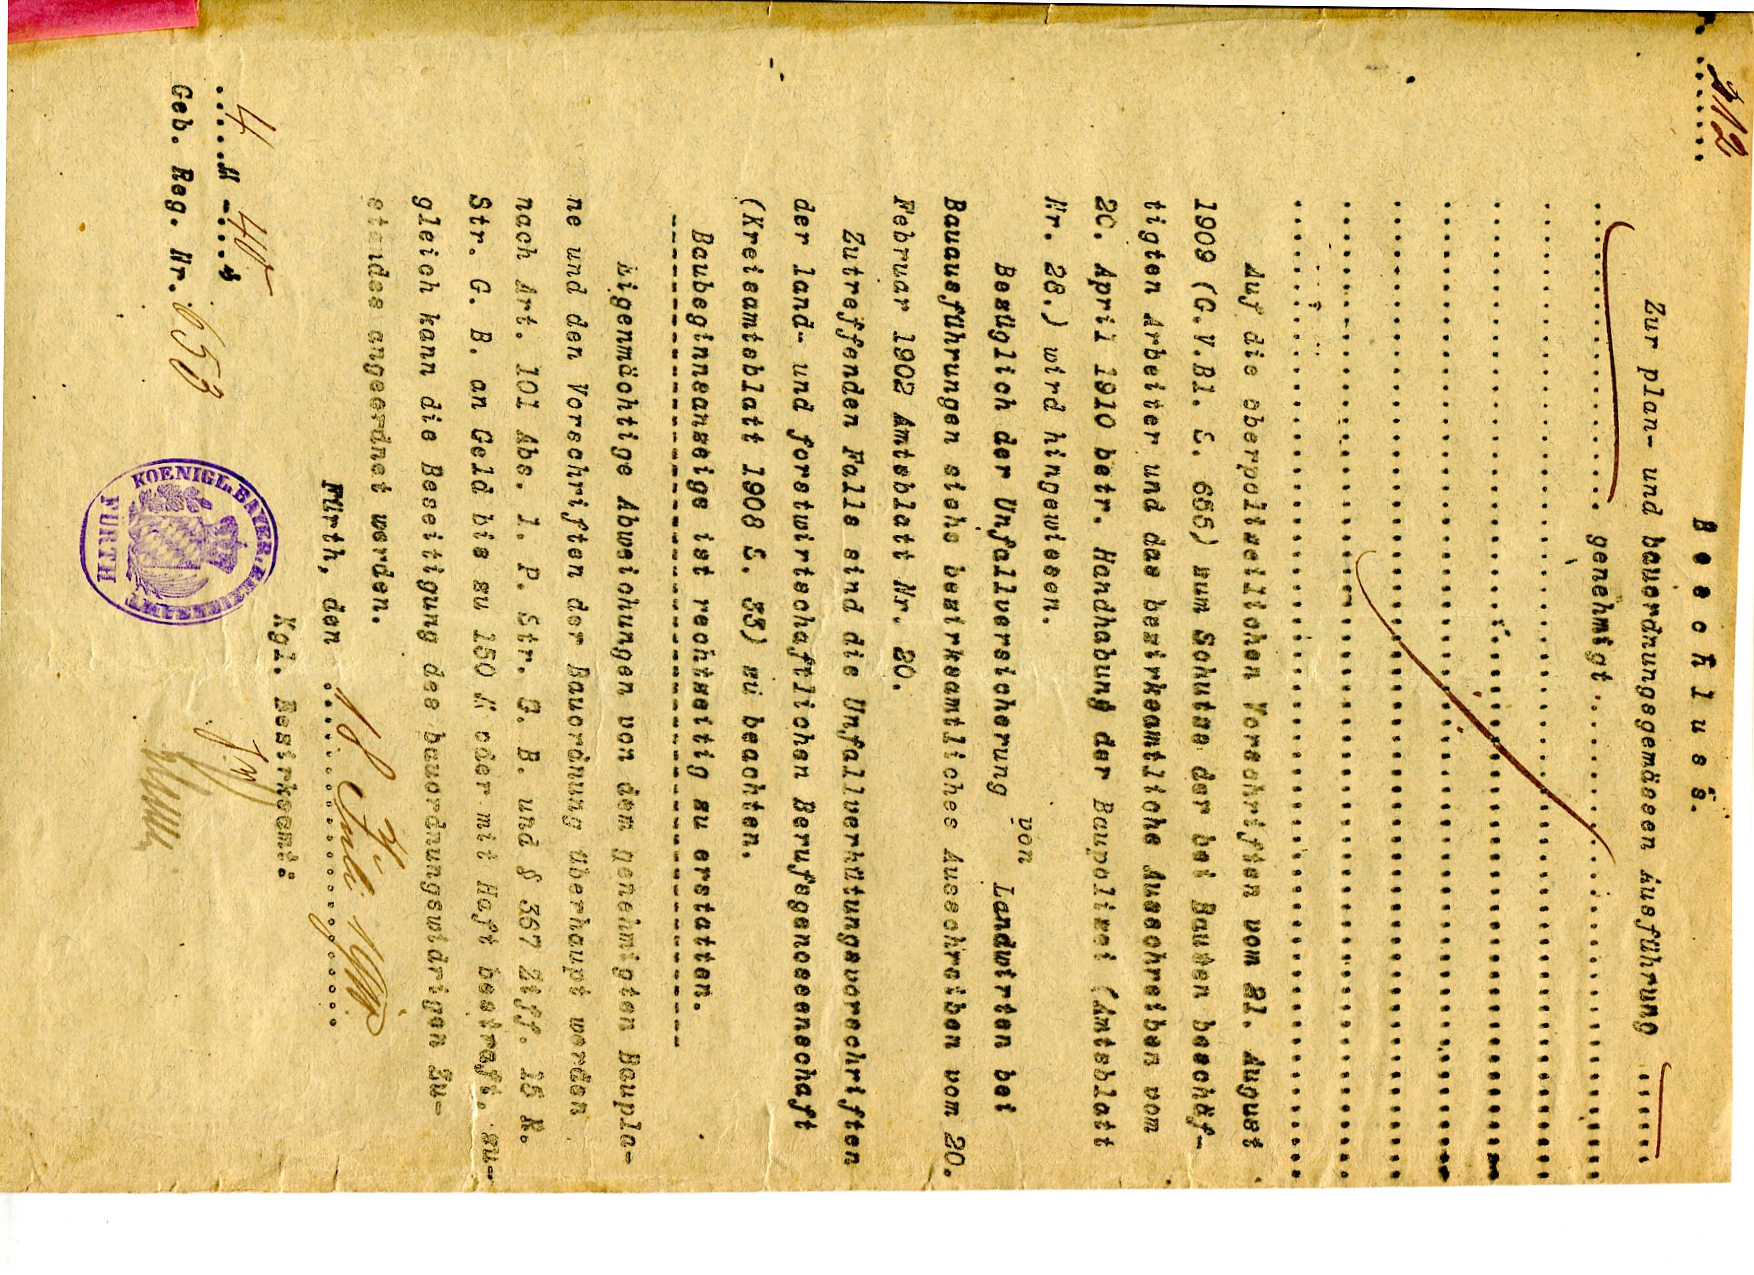 112
B e s c h l u s s.
Zur plan- und bauordnungsgemässen Ausführung ......
.................. genehmigt .................
Auf die oberpolizeilichen Vorschriften vom 21. August
1909 (G.V.Bl. S. 655) zum Schutze der bei Bauten beschäf-
tigten Arbeiter und das bezirksamtliche Ausschreiben vom
20. April 1910 betr. Handhabung der Baupolizei (Amtsblatt
Nr. 28.) wird hingewiesen.
Bezüglich der Unfallversicherung von Landwirten bei
Bauausführungen siehe bezirksamtliches Ausschreiben vom 20.
Februar 1902 Amtsblatt Nr. 20.
Zutreffenden Falls sind die Unfallverhütungsvorschriften
der land- und forstwirtschaftlichen Berufsgenossenschaft
(Kreisamtsblatt 1908 S. 33) zu beachten.
Baubeginnsanzeige ist rechtzeitig zu erstatten.
Eigenmächtige Abweichungen von dem genehmigten Baupla-
ne und den Vorschriften der Bauordnung überhaupt werden
nach Art. 101 Abs. 1. P. Str. G. B. und § 367 Ziff. 15 R.
Str. G. B. an Geld bis zu 150 M oder mit Haft bestraft, zu-
gleich kann die Beseitigung des bauordnungswidrigen Zu-
standes angeordnet werden.
Fürth, den 18. Juli
Kgl. Bezirksamt.
4 M - 40 ₰
Geb. Reg. Nr. 653
KOENIGL. BAYER. BEZIRKSAMT
FÜRTH